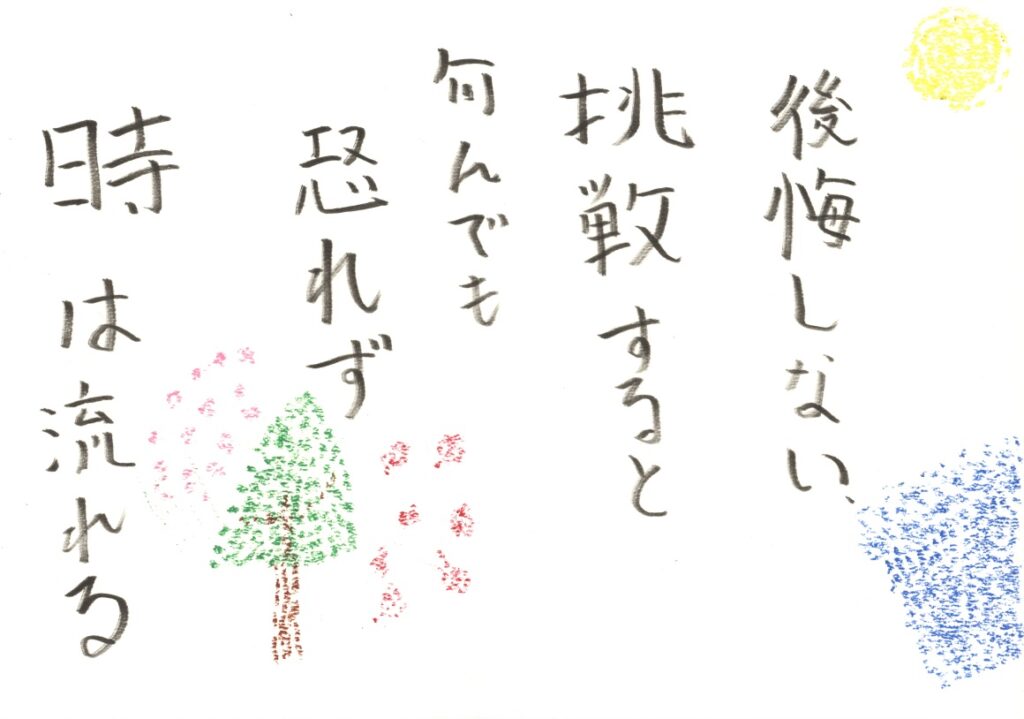 後悔しない、
挑戦すると
何んでも
恐れず
時は流れる